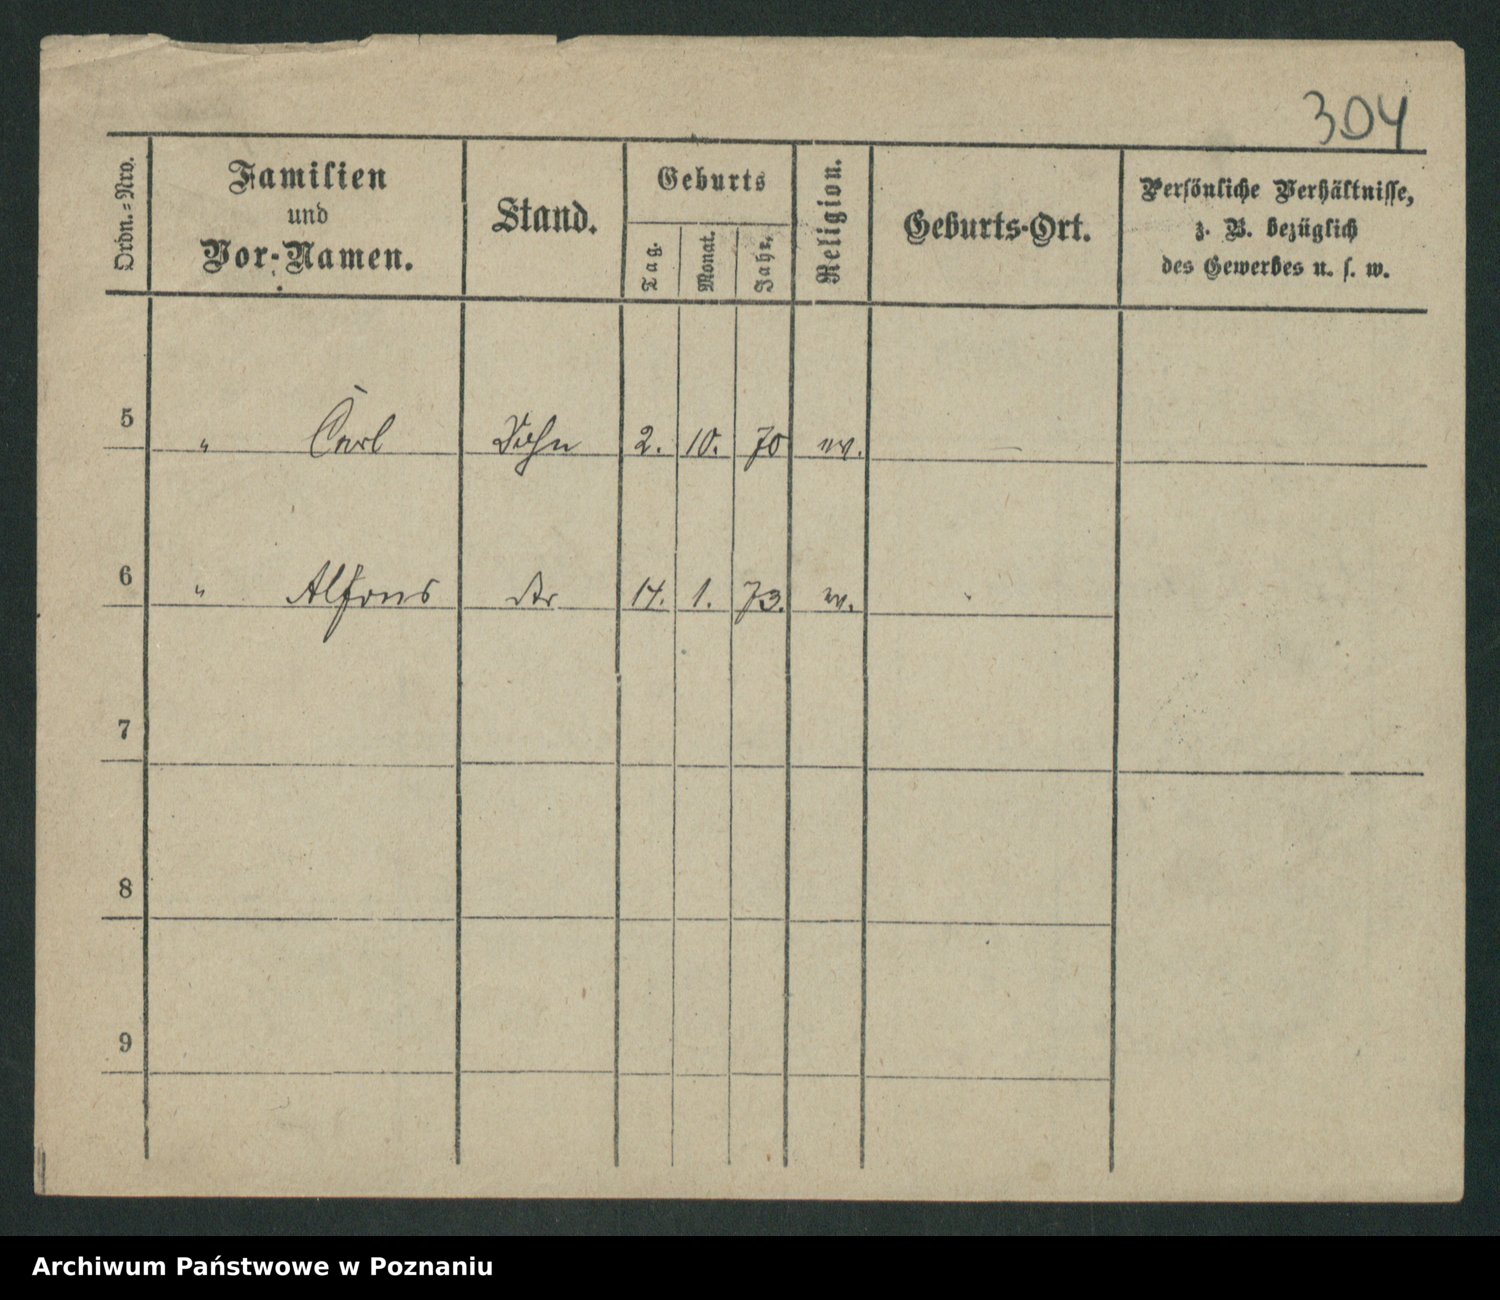 304
Ordn.-Nro.
Familien
und
Vor-Namen.
Stand.
Geburts
Tag.
Monat.
Jahr.
Religion.
Geburts-Ort.
Persönliche Verhältnisse,
z. B. bezüglich
des Gewerbes u. s. w.
5 " Carl Sohn 2. 10. 70 ev.
6 " Alfons dto 14. 1. 73. ev. "
7
8
9
Archiwum Państwowe w Poznaniu